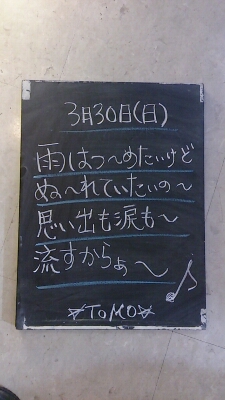 3月30日(日)
雨はつ〜めたいけど
ぬ〜れていたいの〜
思い出も涙も〜
流すからぁ〜♪
☆TOMO☆